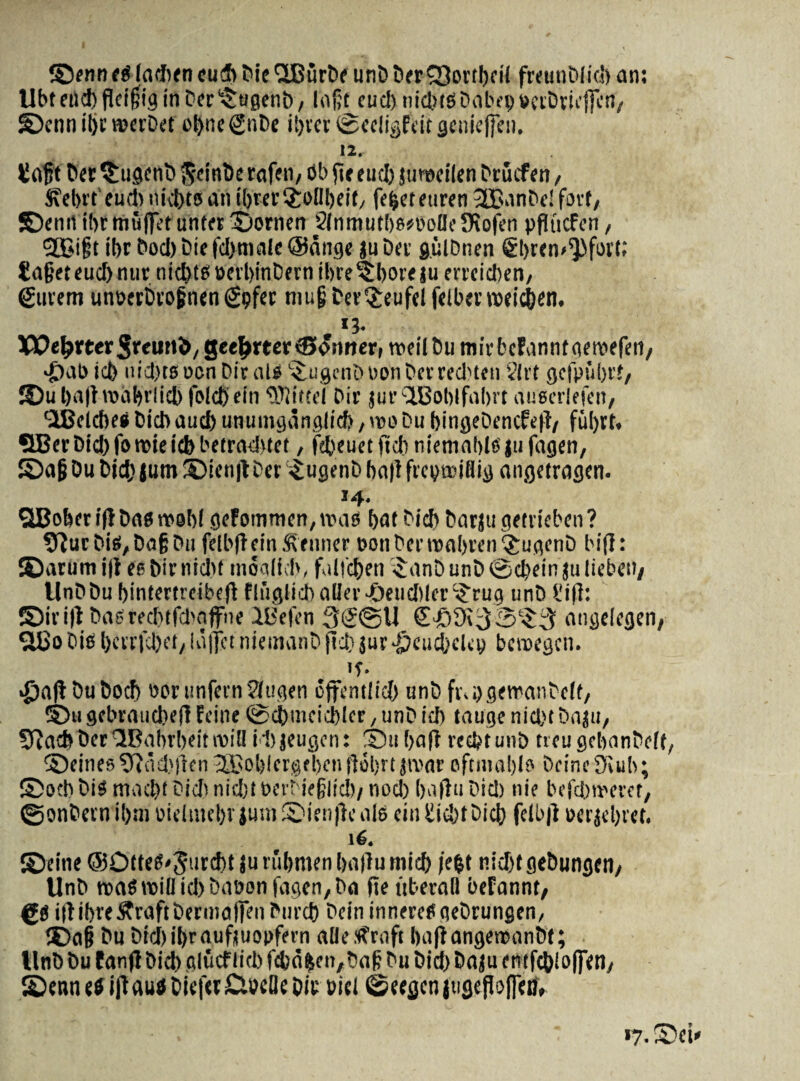 Denn es lachen euch die Würde und der Vortheil freundlich an:
Ubt euch fleißig in der Tugend, laßt euch nichts dabey verdriessen,
Denn ihr werdet ohne Ende ihrer Seeligkeit geniessen.
12.
Laßt der Tugend Feinde rasen, ob sie euch zuweilen drücken,
Kehrt euch nichts an ihrer Tollheit, setzet euren Wandel fort,
Denn ihr müsset unter Dornen Anmuths-volle Rosen pflücken,
Wißt ihr doch die schmale Gänge zu der güldnen Ehren-Pfort;
Laßet euch nur nichts verhindern ihre Thore zu erreichen,
Eurem unverdroßnen Eyfer muß der Teufel selber weichen.
13.
Wehrter Freund, geehrter Gönner, weil du mir bekannt gewesen,
Hab ich nichts von dir als Tugend von der rechten Art gespührt,
Du hast wahrlich solch ein Mittel dir zur Wohlfahrt auserlesen,
Welches dich auch unumgänglich, wo du hingedenckest, führt.
Wer dich so wie ich betrachtet, scheuet sich niemahls zu sagen,
Daß du dich zum Dienst der Tugend hast freywillig angetragen.
14.
Woher ist das wohl gekommen, was hat dich darzu getrieben?
Nur dis, daß du selbst ein Kenner von der wahren Tugend bist:
Darum ist es dir nicht möglich, falschen Tand und Schein zu lieben,
Und du hintertreibest klüglich aller Heuchler Trug und List:
Dir ist das rechtschaffne Wesen JESU EHRJSTJ angelegen,
Wo dis herrschet, lässet niemand sich zur Heuchcley bewegen.
15.
Hast du doch vor unsern Augen öffentlich und frey gewandelt,
Du gebrauchest keine Schmeichler, und ich tauge nicht dazu,
Nach der Wahrheit will ich zeugen: Du hast recht und treu gehandelt,
Deines Nächsten Wohlergehen stöhrt zwar oftmahls deine Ruh;
Doch dis macht dich nicht verdießlich, noch hastu dich nie beschweret,
Sondern ihm vielmehr zum Dienste als ein Licht dich selbst verzehret.
16.
Deine GOttes-Furcht zu rühmen hastu mich jetzt nicht gedungen,
Und was will ich davon sagen, da sie überall bekannt,
Es ist ihre Kraft dermassen durch dein inneres gedrungen,
Daß du dich ihr aufzuopfern alle Kraft hast angewandt;
Und du kanst dich glücklich schätzen, daß du dich dazu entschlossen,
Denn es ist aus dieser Qvelle dir viel Seegen zugeflossen.
17. Dei-